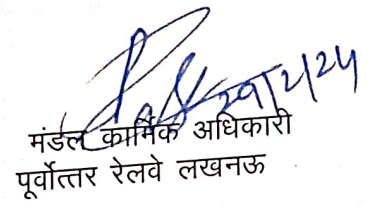 29/2/24
मंडल कार्मिक अधिकारी
पूर्वोत्तर रेलवे लखनऊ